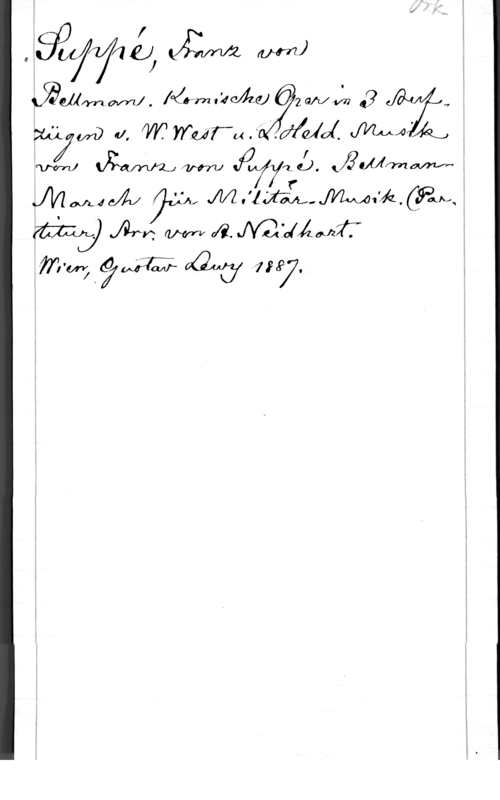 Ork
Suppé, Franz von
Bellman. Komische Oper in 3 Auf-
zügen v. W. West u. L. Held. Musik
von Franz von Suppé. Bellman-
Marsch für Militär-Musik. (Par-
titur.) Arr. von A. Neidhart.
Wien, Gustav Lewy 1887.